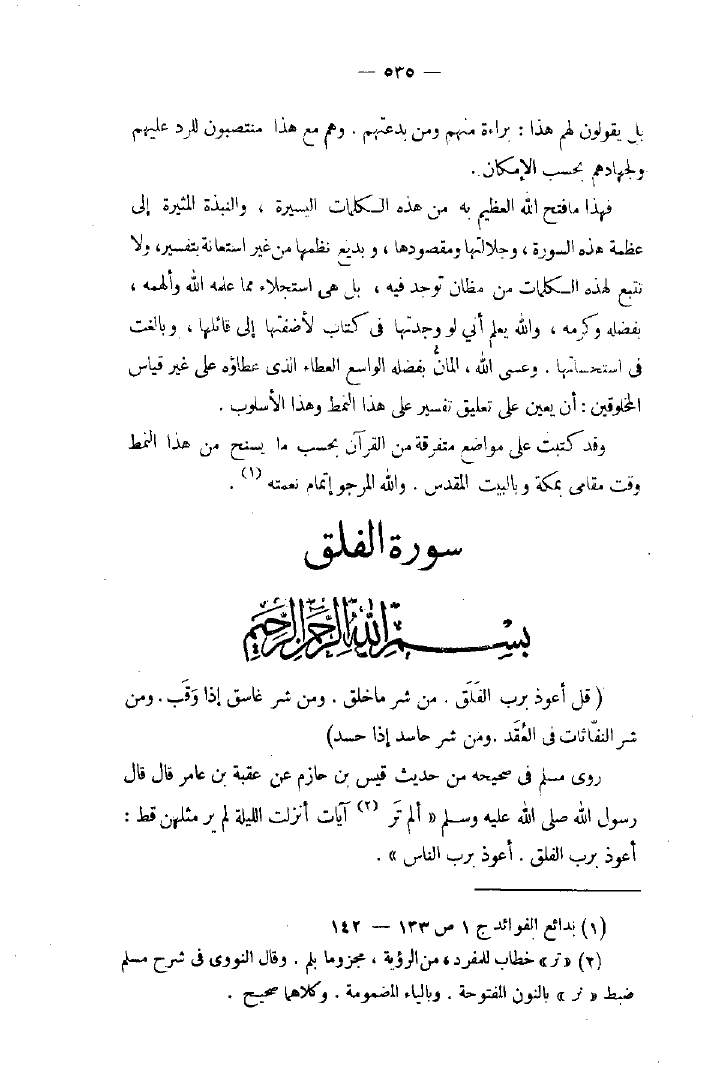 — ٥٣٥ —
بل يقولون لهم هذا : براءة منهم ومن بدعتهم . وهم مع هذا منتصبون للرد عليهم
ولجهادهم بحسب الإمكان .
فهذا مافتح الله العظيم به من هذه الكلمات اليسيرة ، والنبذة المثيرة إلى
عظمة هذه السورة ، وجلالتها ومقصودها ، وبديع نظمها من غير استعانة بتفسير، ولا
تتبع لهذه الكلمات من مظان توجد فيه ، بل هى استجلاء مما علمه الله وألهمه ،
بفضله وكرمه ، والله يعلم أني لو وجدتها فى كتاب لأضفتها إلى قائلها ، وبالغت
فى استحسانها . وعسى الله ، المانُّ بفضله الواسع العطاء الذى عطاؤه على غير قياس
المخلوقين : أن يعين على تعليق تفسير على هذا النمط وهذا الأسلوب .
وقد كتبت على مواضع متفرقة من القرآن بحسب ما يسنح من هذا النمط
وقت مقامى بمكة وبالبيت المقدس . والله المرجو إتمام نعمته (١) .
سورة الفلق
بِسْمِ اللَّهِ الرَّحْمَٰنِ الرَّحِيمِ
( قل أعوذ برب الفَلَق . من شر ماخلق . ومن شر غاسق إذا وَقَب . ومن
شر النفّاثات فى العُقَد .ومن شر حاسد إذا حسد)
روى مسلم فى صحيحه من حديث قيس بن حازم عن عقبة بن عامر قال قال
رسول الله صلى الله عليه وسلم « ألم تَر (٢) آيات أنزلت الليلة لم ير مثلهن قط :
أعوذ برب الفلق . أعوذ برب الناس » .
(١) بدائع الفوائد ج ١ ص ١٣٣ — ١٤٢
(٢) « تر » خطاب للمفرد، من الرؤية ، مجزوما بلم . وقال النووى فى شرح مسلم
ضبط « نر » بالنون المفتوحة . وبالياء المضمومة . وكلاهما صحيح .